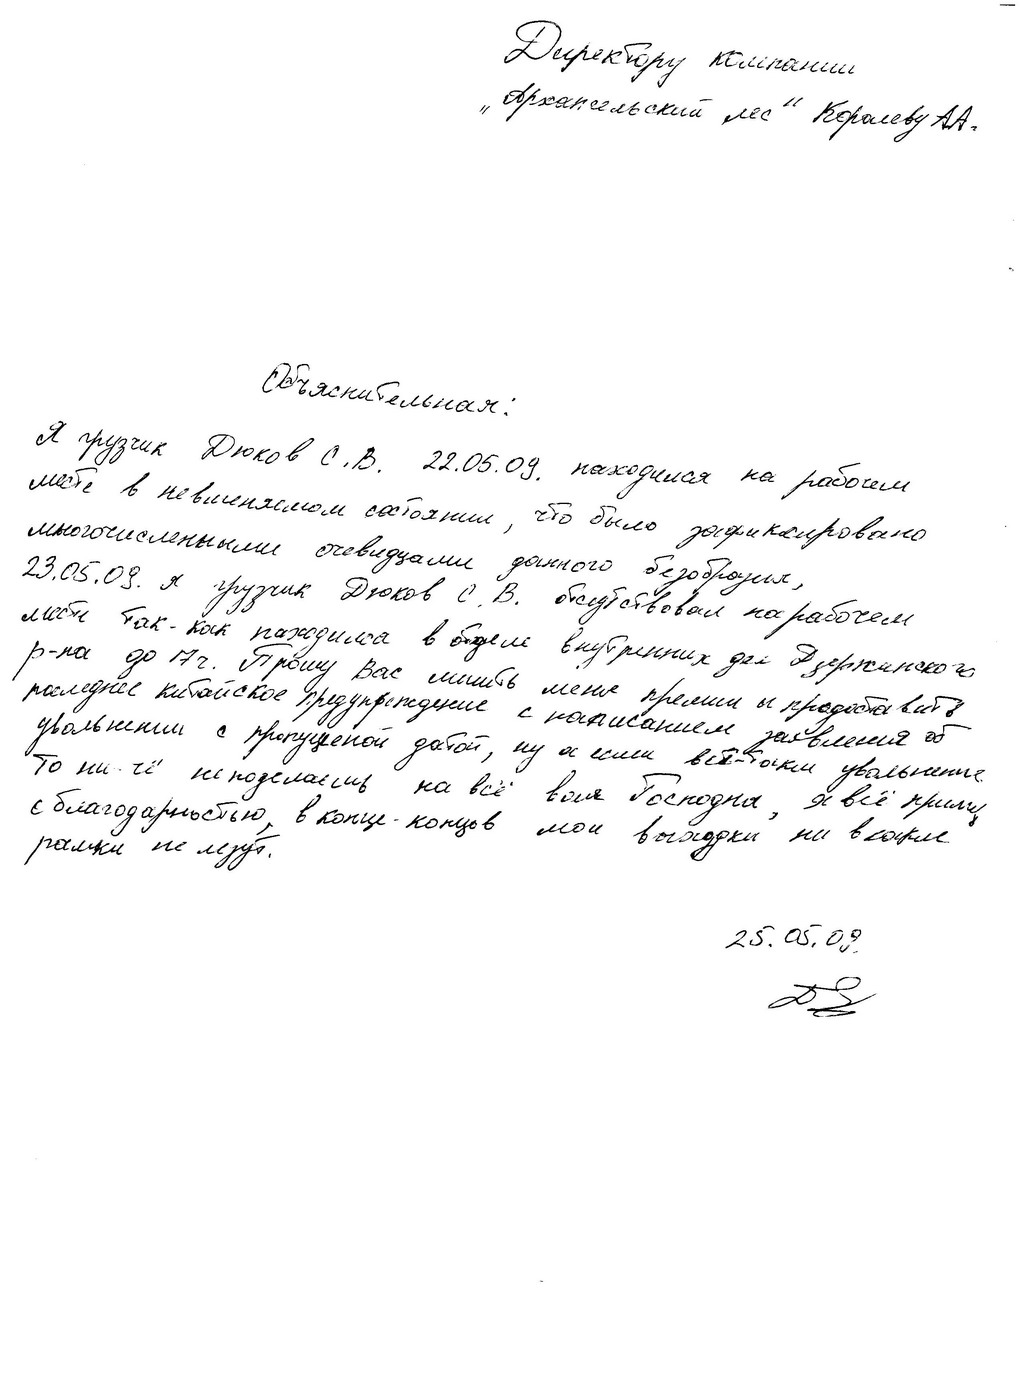 Директору компании
„Архангельский лес" Королеву А.А.
Объяснительная:
Я грузчик Дюков С.В. 22.05.09. находился на рабочем
месте в невменяемом состоянии, что было зафиксировано
многочисленными очевидцами данного безобразия,
23.05.09. я грузчик Дюков С.В. отсутствовал на рабочем
месте так-как находился в отделе внутренних дел Дзержинского
р-на до 17ч. Прошу Вас лишить меня премии и предоставить
последнее китайское предупреждение с написанием заявления об
увольнении с пропущеной датой, ну а если всё-таки увольнение
то ни-чё не поделаешь на всё воля Господня, я всё приму
с благодарностью, в конце-концов мои выходки ни в какие
рамки не лезут.
25.05.09.